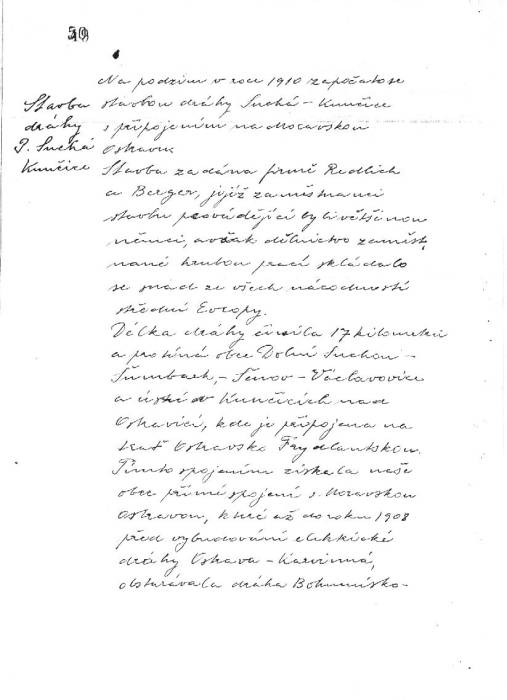 Na podzim v roce 1910 započato se
Stavba
dráhy
P. Suchá
Kunčice
stavbou dráhy Suchá - Kunčice
s připojením na Moravskou
Ostravu.
Stavba zadána firmě Redlich
a Berger, jejíž zaměstnanci
stavbu provádějící byli většinou
němci, avšak dělnictvo zaměst,
nané hrubou prací skládalo
se snad ze všech národností
střední Evropy.
Délka dráhy činila 17 kilometrů
a protíná obce Dolní Suchou -
Šumbark, - Šenov - Václavovice
a ústí v Kunčicích nad
Ostravicí, kde je připojena na
trať Ostravsko Frydlantskou.
Tímto spojením získala naše
obec přímé spojení s Moravskou
Ostravou, které až do roku 1908
před vybudování elektrické
dráhy Ostrava - Karvinná,
obstarávala dráha Bohumínsko-